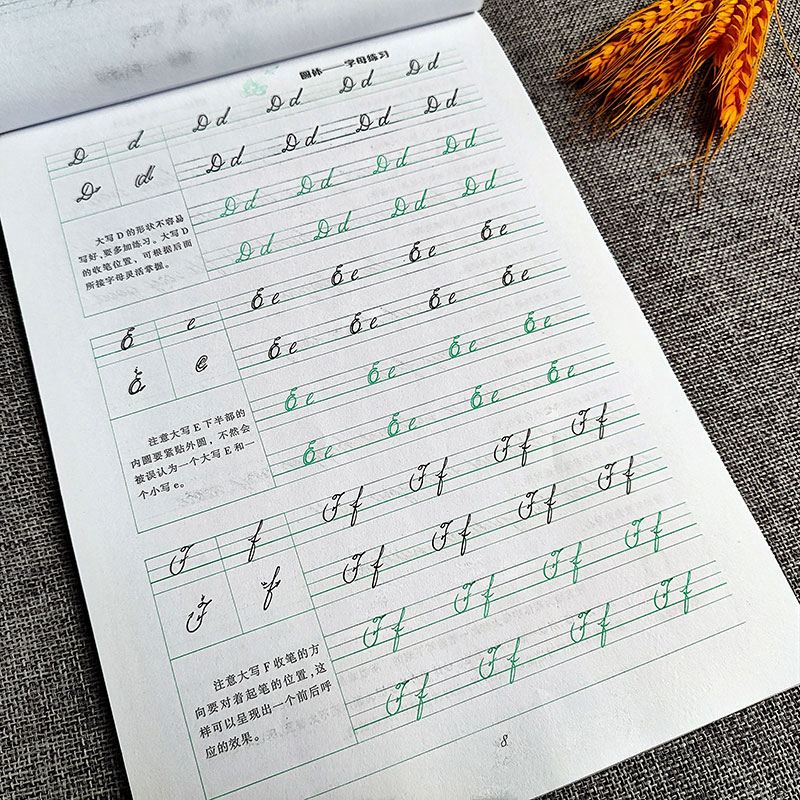 圆体——字母练习
D d D d D d D d D d
D d D d D d D d
D d D d D d D d D d
D d D d D d D d
大写 D 的形状不容易
写好,要多加练习。大写 D
的收笔位置,可根据后面
所接字母灵活掌握。
E e E e E e E e E e
E e E e E e E e E e
E e E e E e E e
E e E e E e E e
注意大写 E 下半部的
内圆要紧贴外圆,不然会
被误认为一个大写 E 和一
个小写 e。
F f F f F f F f F f
F f F f F f F f F f
F f F f F f F f
F f F f F f F f
注意大写 F 收笔的方
向要对着起笔的位置,这
样可以呈现出一个前后呼
应的效果。
8